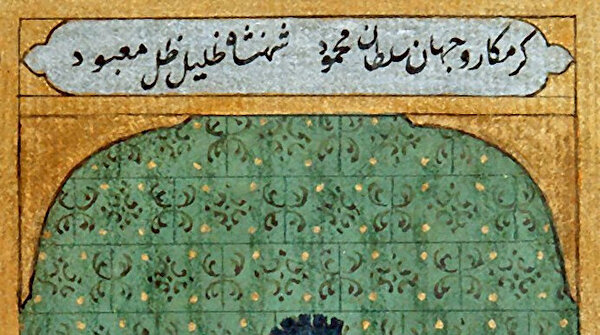 کرمکار و جهان سلطان محمود شهنشاه ظلیل ظل معبود